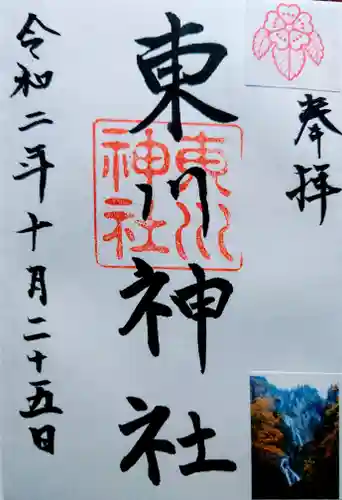 奉拝
東川神社
東川
神社
令和二年十月二十五日